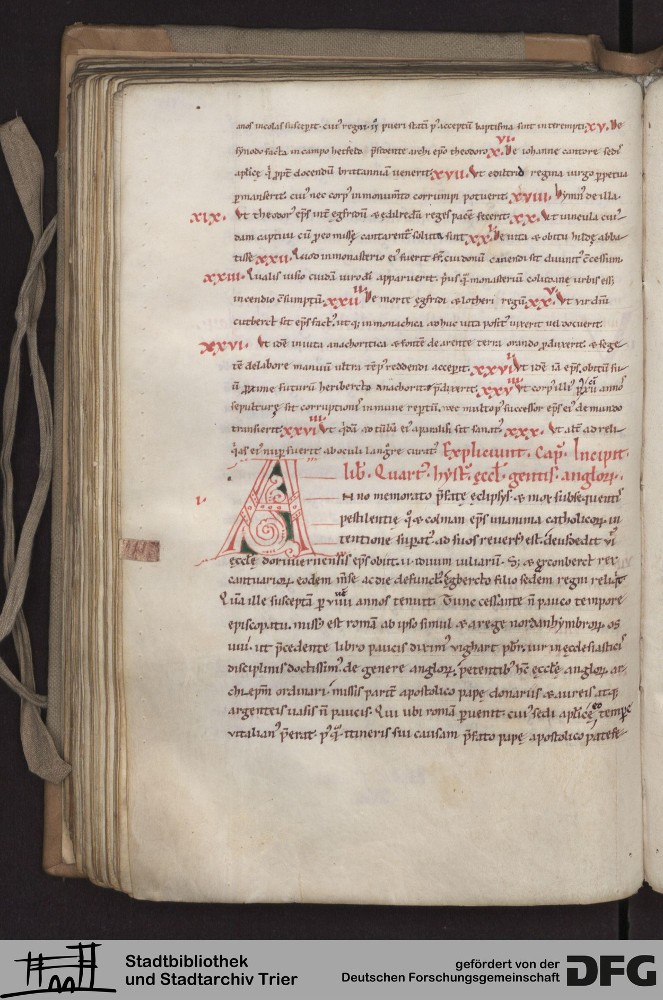 anos nicolas suscepit. cui' regni. iiii. pueri statī p' acceptū baptisma sint interempti. XV. De
VI.
synodo facta in campo hetfeld. p̄sidente archi ep̄o theodoro. X. De iohanne cantore sedis
aplicę q̇ ꝓpt' docendū brittanniam venerit. XVII. Vt edildrid regina uirgo ꝑpetua
ꝑmanserit. cui' nec corp' in monum̄to corrumpi potuerit. XVIII. hymn' de illa.
XIX. Vt theodor' ep̄s int' egfridū & edilredū reges pacē fecerit. XX. Vt uincula cui'
dam captiui cū ꝓ eo missę cantarent' soluta sint. XXI. De uita & obitu hildę abba
tisse. XXII. Quod in monasterio ei' fuerit fr̄. cui donū canendi sit diuinit' c̄cessum.
XXIII. Qualis uisio cuidā uiro dī apparuerit. p̄usq̄ monasteriū coludanę urbis ess&
incendio c̄sumptū. XXIIII. De morte egfridi & lotheri regū. XXV. Vt uir dn̄i
cutberct' sit ep̄s fact'. utq; in monachica adhuc uita posit' uixerit uel docuerit.
XXVI. Vt idē in uita anachoritica & fontē de arente terra orando ꝓduxerit. & sege
tē de labore manuū ultra tēp' serendi acceperit. XXVII. Vt idē iā ep̄s. obitū su
ū ꝓxime futurū heribercto anachoritę p̄dixerit. XXVIII. Vt corp' illi' p' xi annos
sepulturę. sit corruptionis inmune reptū. nec multo p' successor ep̄s ei' de mundo
transierit. XXVIIII. Vt q̇dā ad tūbā ei' a paralisi sit sanat'. XXX. Vt alt' ad reli
q̇as ei' nup̄ fuerit ab oculi langore curat'. Explicivnt. Cap'. Incipit
lib'. Quart'. hyst'. eccl'. gentis. anglorꝝ.
I. ANno memorato p̄fatę eclypsis. & mox subsequentis
pestilentię. q° & colman ep̄s unanima catholicorꝝ. in
tentione supat'. ad suos reuers' est. deusdedit vi'
ęcclę dorouernensis ep̄s obiit. ii. iduum iuliarū. Sꝫ & erconberct rex
cantuariorꝝ eodem m̄se ac die defunct'. egbercto filio sedem regni reliq̇t.
Quā ille susceptā ꝑ viiii annos tenuit. Tunc cessante n̄ pauco tempore
episcopatu. miss' est romā ab ipso simul & a rege nordanhymbrorꝝ. os
uiu. ut p̄cedente libro paucis diximus. uighart pbr̄. uir in ecclesiasticis
disciplinis doctissim'. de genere anglorꝝ. petentib' hc̄ ęcclę anglorꝝ. ar
chi. epm̄ ordinari. missis parit' apostolico papę donariis & aureis. atq;
argenteis uasis n̄ paucis. Qui ubi romā ꝑuenit. cui' sedi aplicę eo tempr̄e
vitalian' p̄erat. p' q° itineris sui causam p̄fato papę apostolico patefe
Stadtbibliothek
und Stadtarchiv Trier
gefördert von der
Deutschen Forschungsgemeinschaft
DFG